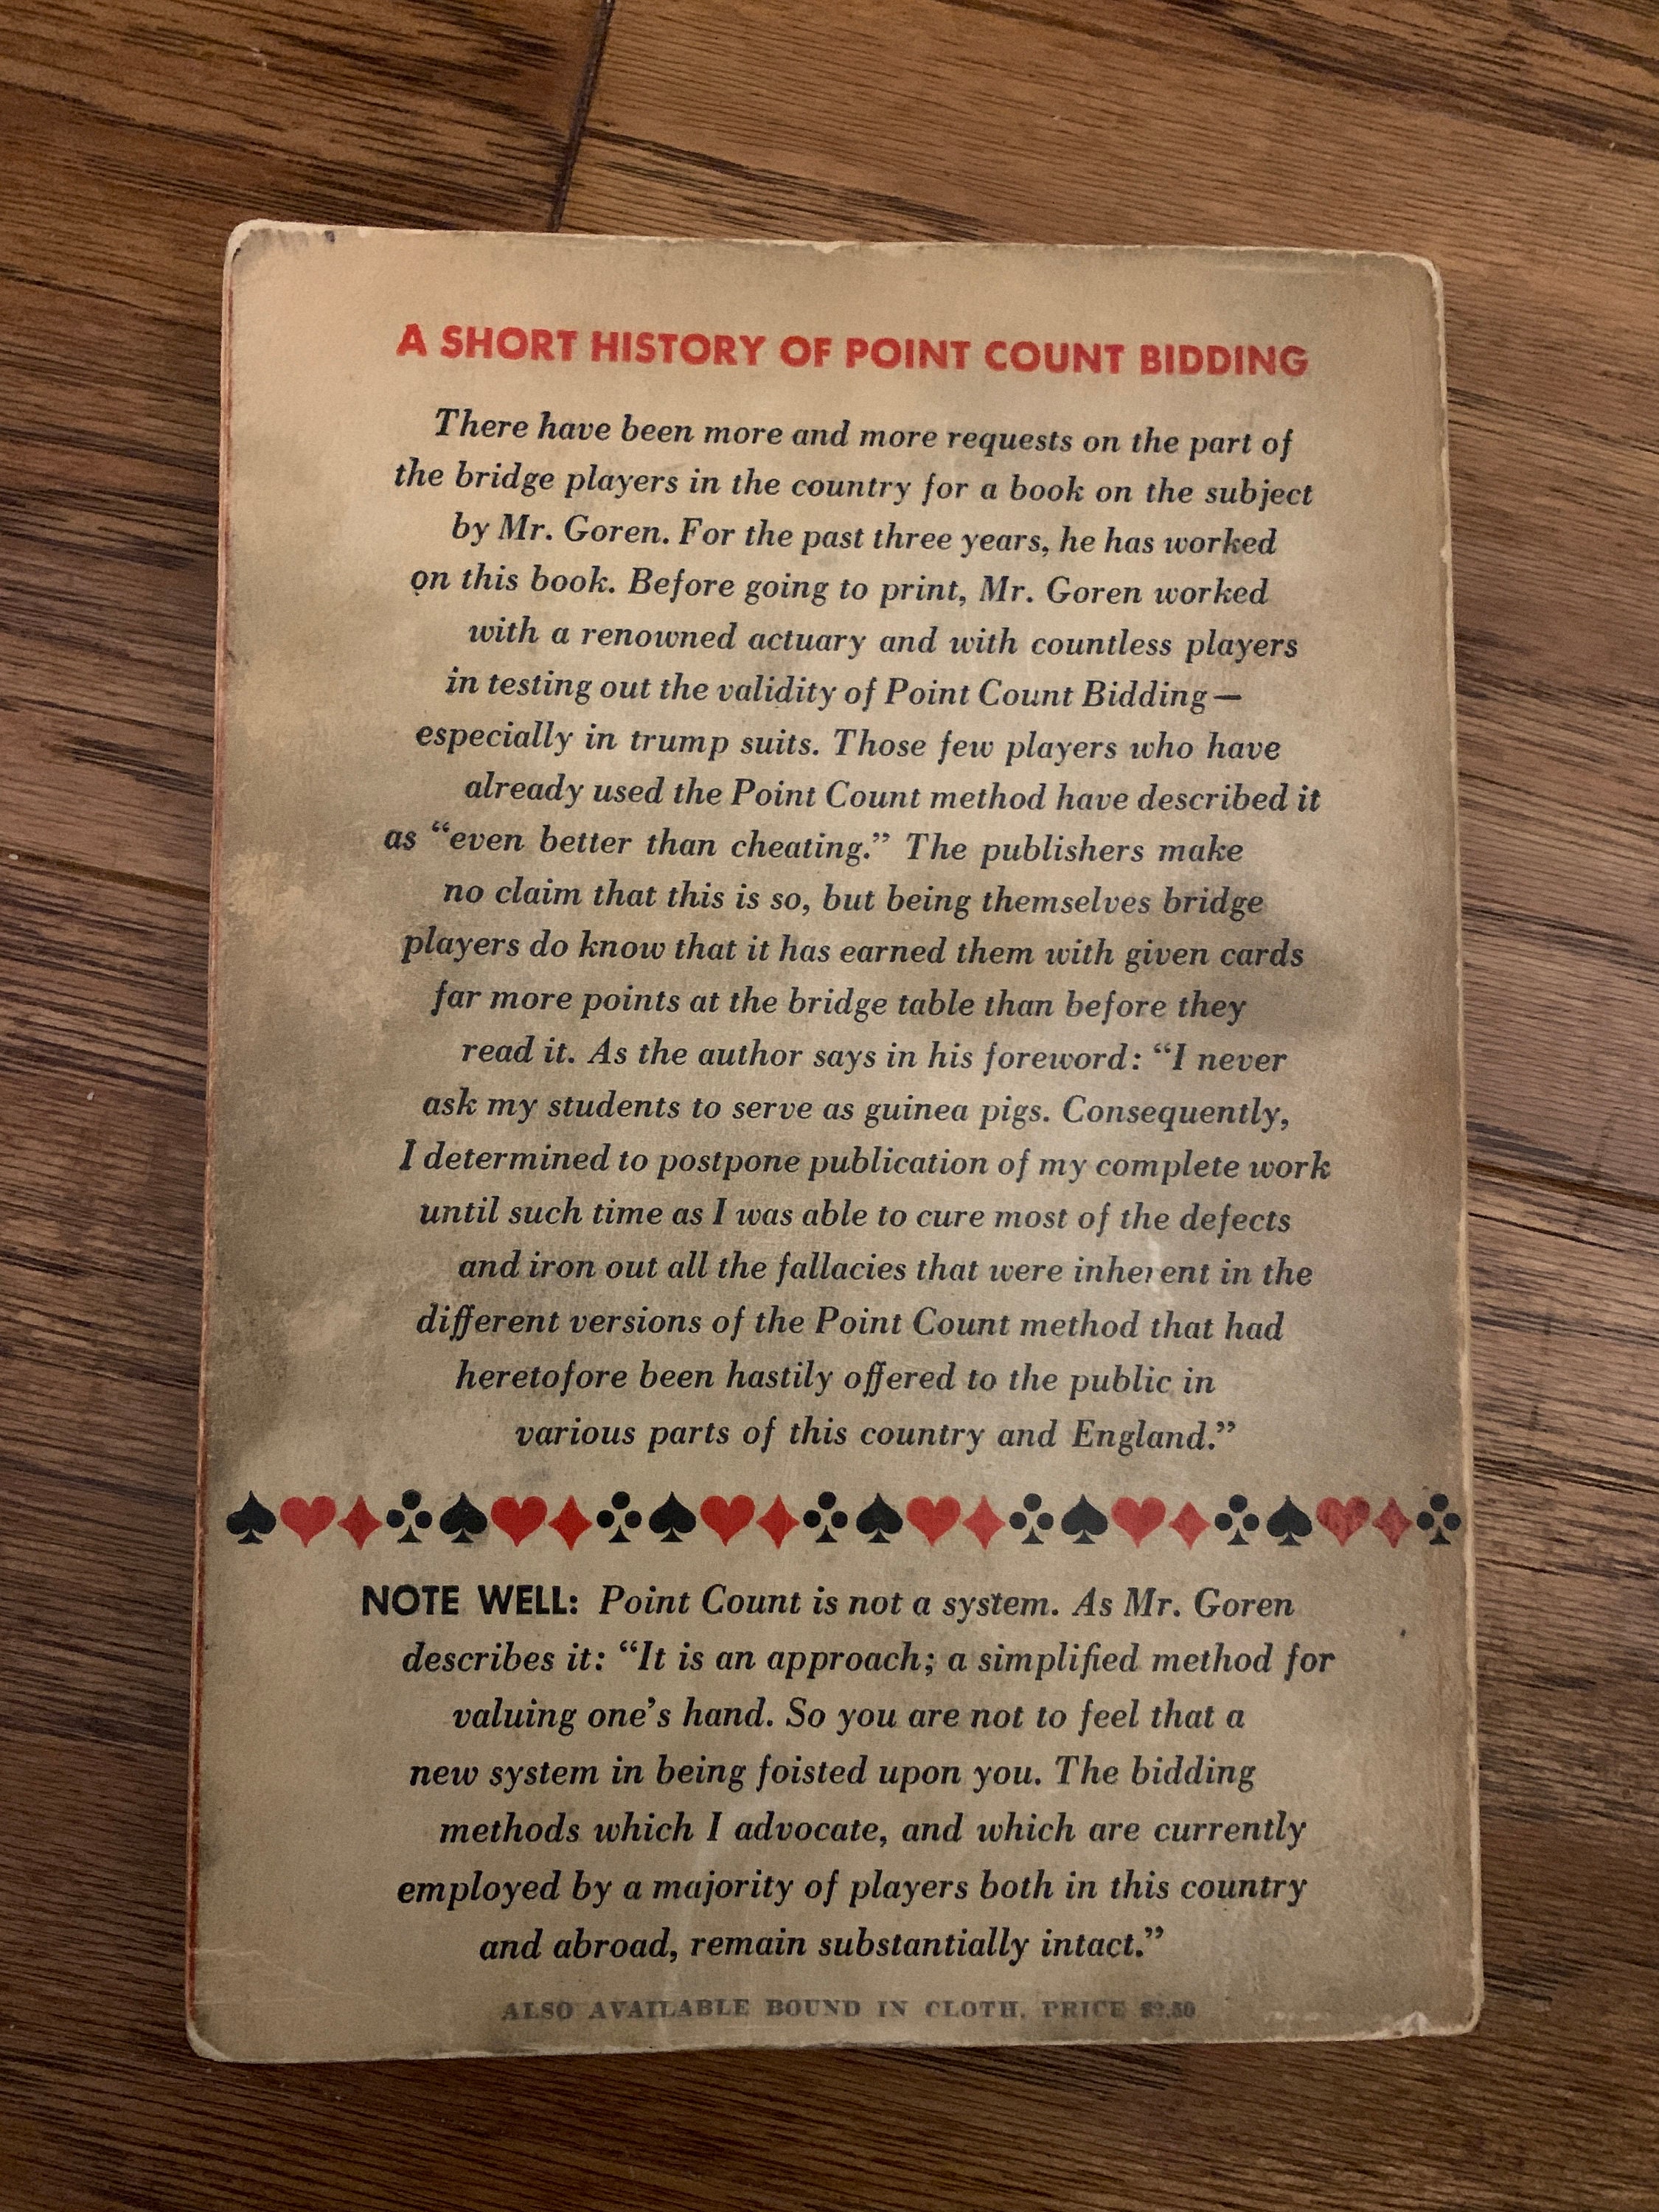 A SHORT HISTORY OF POINT COUNT BIDDING
There have been more and more requests on the part of
the bridge players in the country for a book on the subject
by Mr. Goren. For the past three years, he has worked
on this book. Before going to print, Mr. Goren worked
with a renowned actuary and with countless players
in testing out the validity of Point Count Bidding—
especially in trump suits. Those few players who have
already used the Point Count method have described it
as “even better than cheating.” The publishers make
no claim that this is so, but being themselves bridge
players do know that it has earned them with given cards
far more points at the bridge table than before they
read it. As the author says in his foreword: “I never
ask my students to serve as guinea pigs. Consequently,
I determined to postpone publication of my complete work
until such time as I was able to cure most of the defects
and iron out all the fallacies that were inherent in the
different versions of the Point Count method that had
heretofore been hastily offered to the public in
various parts of this country and England.”
NOTE WELL: Point Count is not a system. As Mr. Goren
describes it: “It is an approach; a simplified method for
valuing one’s hand. So you are not to feel that a
new system in being foisted upon you. The bidding
methods which I advocate, and which are currently
employed by a majority of players both in this country
and abroad, remain substantially intact.”
ALSO AVAILABLE BOUND IN CLOTH, PRICE $2.50